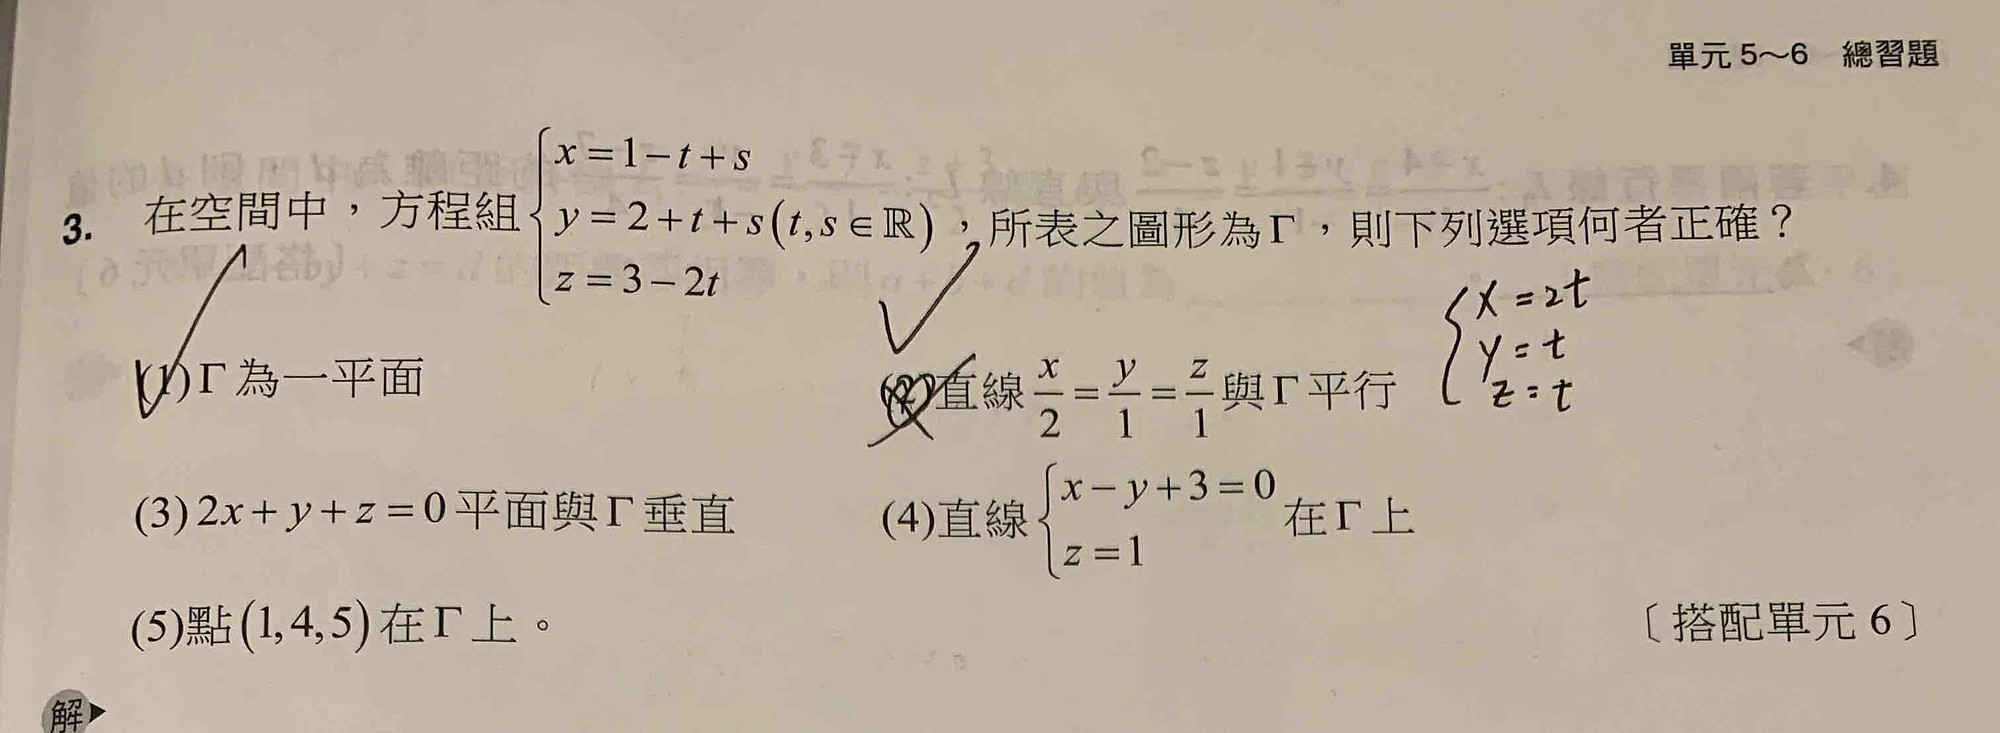 單元 5~6 總習題
3. 在空間中，方程組{x=1-t+s
y=2+t+s(t,s∈ℝ)，所表之圖形為Γ，則下列選項何者正確？
z=3-2t
{x=2t
y=t
z=t
(1)Γ為一平面
(2)直線x/2=y/1=z/1與Γ平行
(3)2x+y+z=0平面與Γ垂直
(4)直線{x-y+3=0
z=1
在Γ上
(5)點(1,4,5)在Γ上。
〔搭配單元 6〕
解